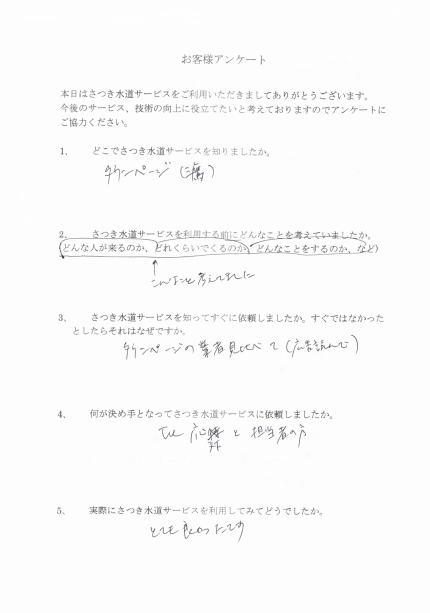 お客様アンケート
本日はさつき水道サービスをご利用いただきましてありがとうございます。
今後のサービス、技術の向上に役立てたいと考えておりますのでアンケートに
ご協力ください。
1、 どこでさつき水道サービスを知りましたか。
タウンページ
2、 さつき水道サービスを利用する前にどんなことを考えていましたか。
(どんな人が来るのか、どれくらいでくるのか、どんなことをするのか、など)
こんなこと考えてました
3、 さつき水道サービスを知ってすぐに依頼しましたか。すぐではなかった
としたらそれはなぜですか。
タウンページの業者見比べて(広告読んで)
4、 何が決め手となってさつき水道サービスに依頼しましたか。
Tel 応対と担当者の方
5、 実際にさつき水道サービスを利用してみてどうでしたか。
とても良かったです